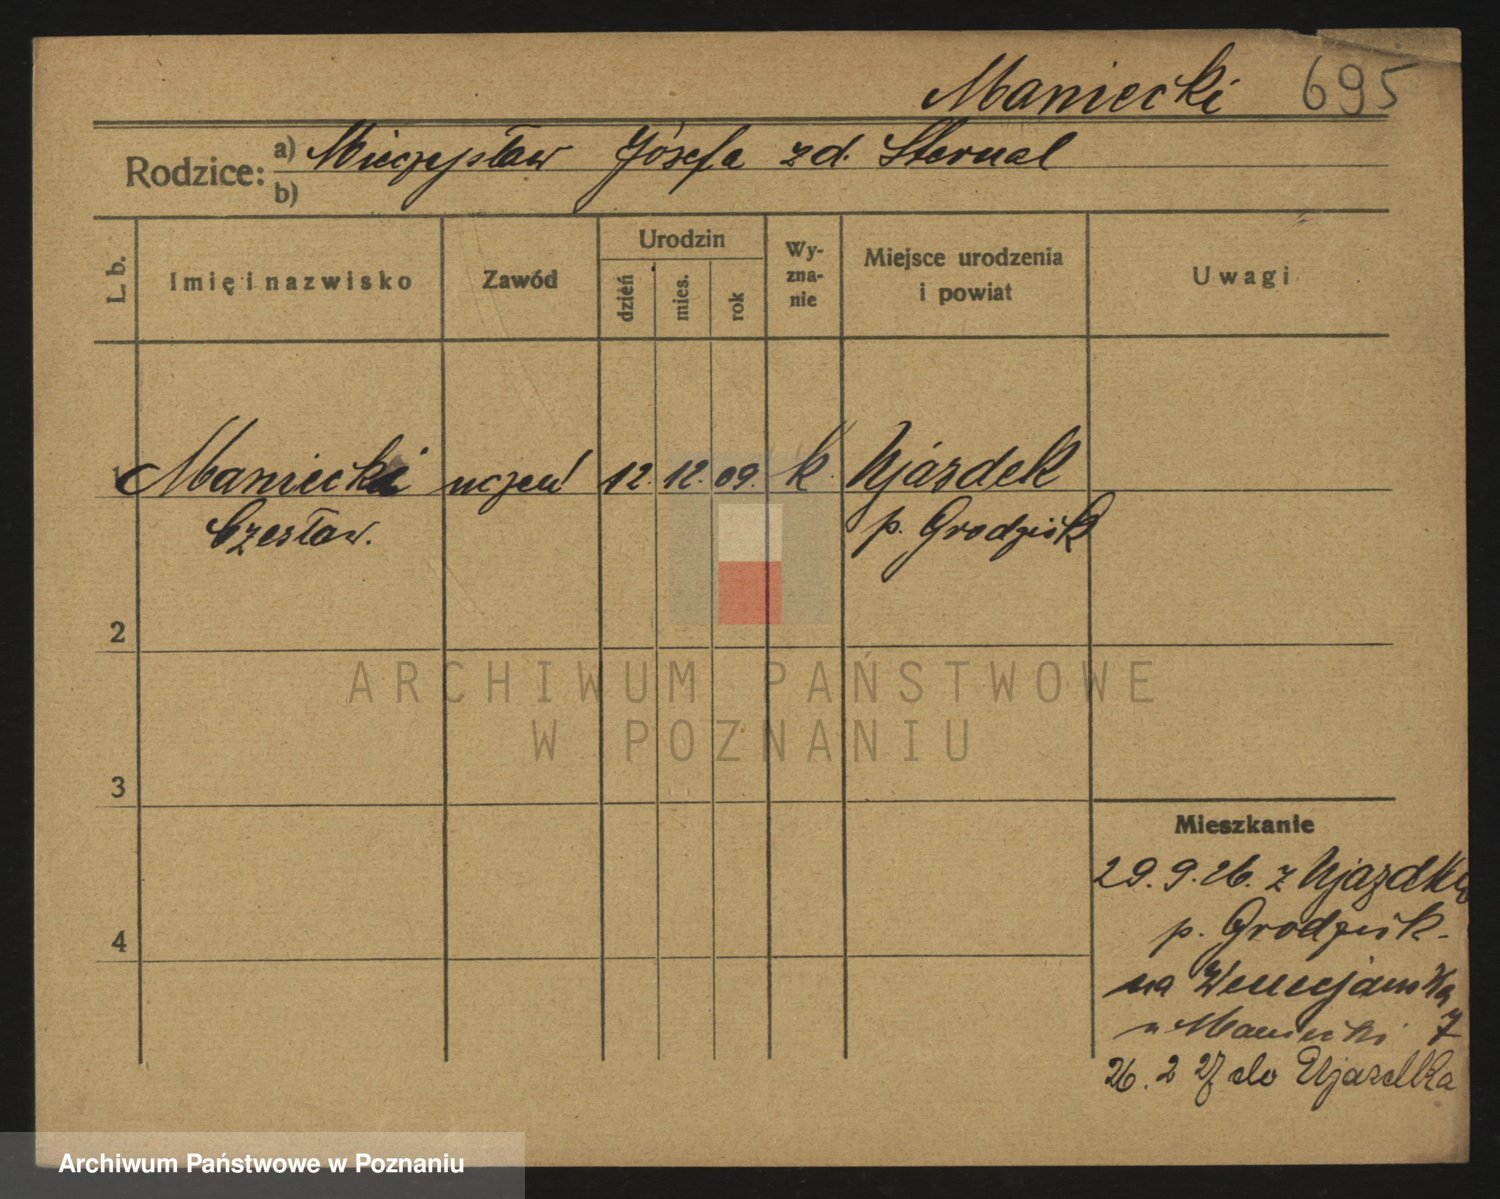 Maniecki 695
Rodzice: a) Mieczysław Józefa zd. Sternal
b)
L. b. Imię i nazwisko Zawód Urodzin dzień mies. rok Wy-zna-nie Miejsce urodzenia i powiat Uwagi
1 Maniecki uczeń 12. 12. 09. k. Ujazdek
Czesław. p. Grodzisk
2
ARCHIWUM PAŃSTWOWE
W POZNANIU
3
Mieszkanie
29.9.26. z Ujazdka
p. Grodzisk.
4
na Wenecjańska 7
u Maniecki
26. 2 27 do Ujazdka
Archiwum Państwowe w Poznaniu